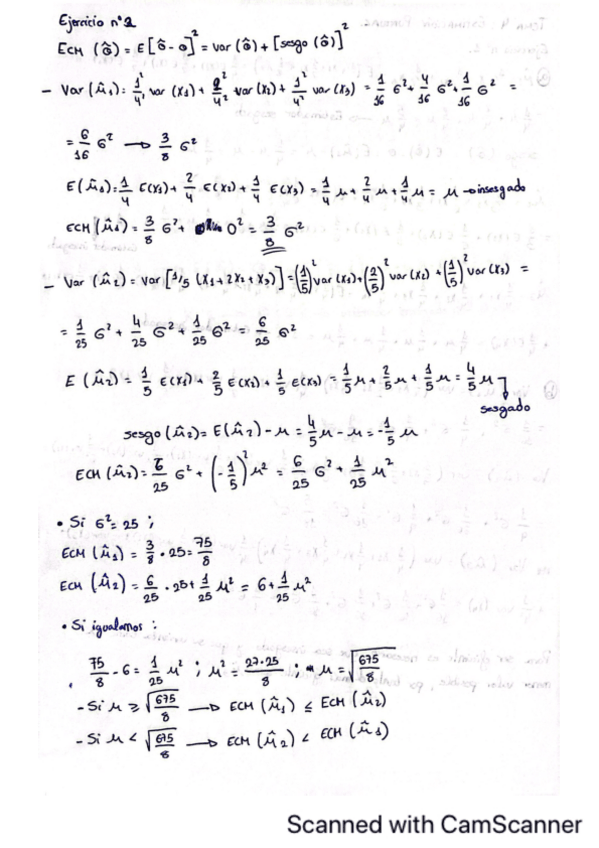 Ejercicio nº2
ECM (ô) = E[ô - o]² = var (ô) + [sesgo (ô)]²
- Var (μ̂1) = 1²/4² var (x1) + 2²/4² var (x2) + 1²/4² var (x3) = 1/16 6² + 4/16 6² + 1/16 6² =
= 6/16 6² → 3/8 6²
E(μ̂1) = 1/4 E(x1) + 2/4 E(x2) + 1/4 E(x3) = 1/4 μ + 2/4 μ + 1/4 μ = μ → insesgado
ECM (μ̂1) = 3/8 6² + 0² = 3/8 6²
- Var (μ̂2) = Var [1/5 (x1 + 2x2 + x3)] = (1/5)² var (x1) + (2/5)² var (x2) + (1/5)² var (x3) =
= 1/25 6² + 4/25 6² + 1/25 6² = 6/25 6²
E (μ̂2) = 1/5 E(x1) + 2/5 E(x2) + 1/5 E(x3) = 1/5 μ + 2/5 μ + 1/5 μ = 4/5 μ
sesgado
sesgo (μ̂2) = E(μ̂2) - μ = 4/5 μ - μ = -1/5 μ
ECM (μ̂2) = 6/25 6² + (-1/5)² μ² = 6/25 6² + 1/25 μ²
• Si 6² = 25 ;
ECM (μ̂1) = 3/8 · 25 = 75/8
ECM (μ̂2) = 6/25 · 25 + 1/25 μ² = 6 + 1/25 μ²
• Si igualamos :
75/8 - 6 = 1/25 μ² ; μ² = 27·25/8 ; μ = √675/8
- Si μ ≥ √675/8 → ECM (μ̂1) ≤ ECM (μ̂2)
- Si μ < √675/8 → ECM (μ̂2) < ECM (μ̂1)
Scanned with CamScanner